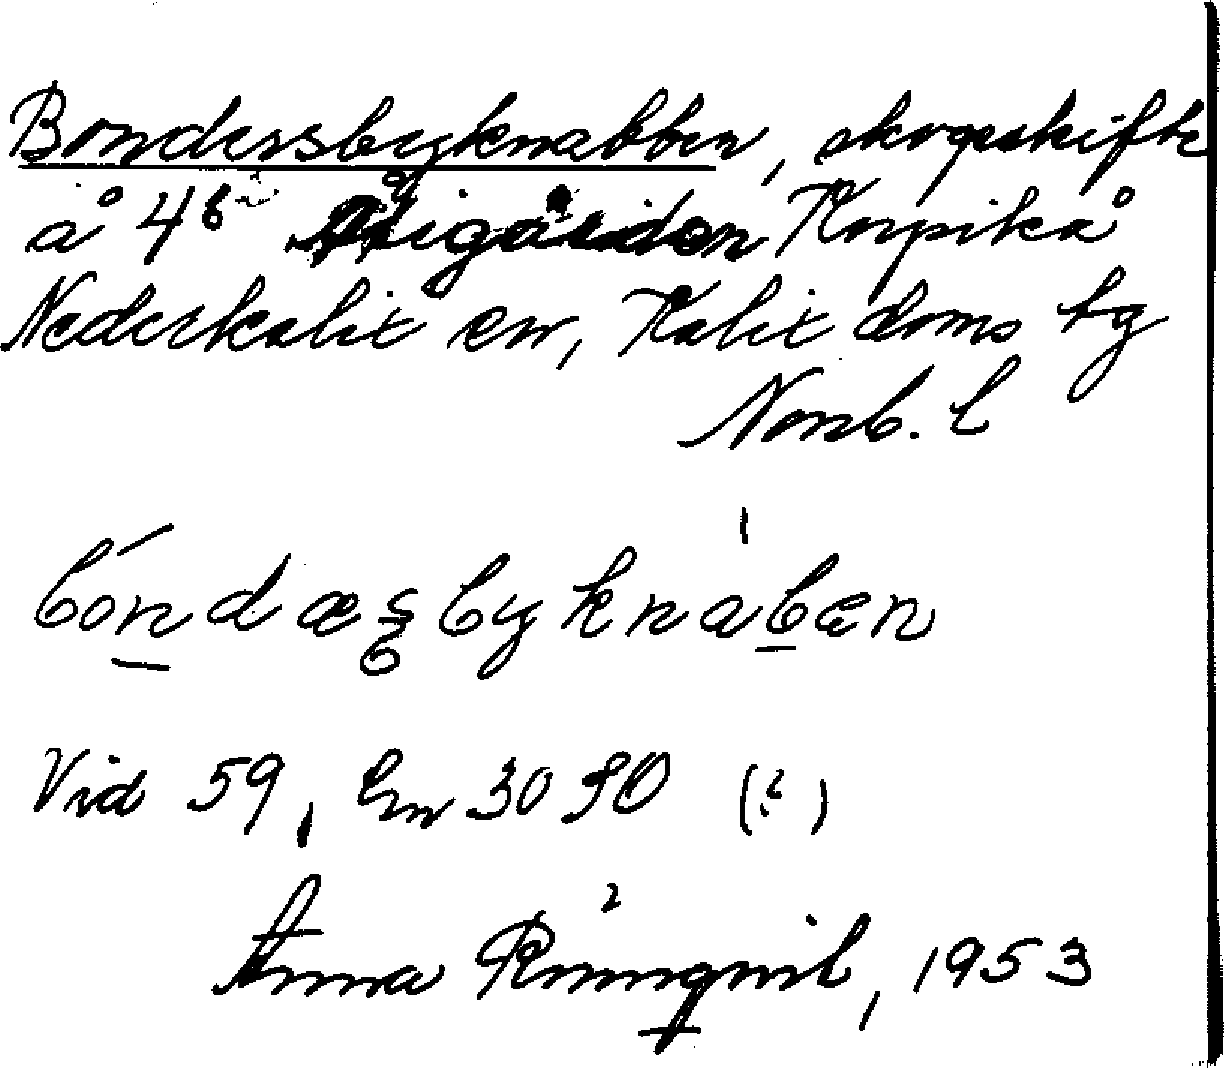 Bondersbyknabben, skogsskifte
å 46 Korpikå
Nederkalix sn, Kalix doms bg
Norrb. l
bóndæsbyknabæn
Vid 59, En 3090 (?)
Anna Rönnqvist, 1953